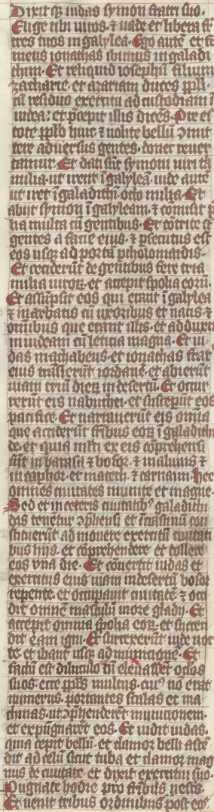 Dixit qz iudas symoni fratri suo.
Elige tibi viros. et uade et libera fr
atres tuos in galylea. Ego aute et fr
meus ionathas ibimus in galadi
thim. Et reliquid iosephum filium
zacharie. et azariam duces ppli
cu residuo exercitu ad custodiam i
iudea. et pcepit illis dices. Pre es
tote pplo huic. et nolite bellu comit
tere adversus gentes. donec rever
tamur. Et dati sut symoni viri tria
milia. ut irent i galylea. iude aute
ut iret i galadithi. octo milia. Et
abiit symon i galyleam. et comisit p
lia multa cu gentibus. Et cotrite st
gentes a facie eius. et psecutus est
eos usqz ad porta ptholomaidis.
Et ceciderut de gentibus fere tria
milia viroz. et accepit spolia eoru.
Et assupsit eos qui erant i galylea
et in arbatis cu uxoribus et natis et
omnibus que erant illis. et adduxit
i iudeam cu leticia magna. Et iu
das machabeus et ionathas frat
eius tansierut iordane. et abierut
viam triu dieru in deserto. Et occur
rerut eis nabuthei. et susceperut eos
pacifice. Et narraverut eis omnia
que acciderut fribus eoz i galadithi
de. et quia multi ex eis coprehensi
sut in barasa et bosor. et in alimis et
in casphor. et mageth. et carnaim. hec
omnes civitates munite et magne.
Sed et in ceteris civitatibz galadithi
dis tenetur coprehensi. et i crastinu con
stituerut admovere exercitu civitati
bus hijs. et coprehendere. et tollere
eos una die. Et covertit iudas et
exercitus eius viam in desertu bosor
repente. et occupavit civitate. et oc
cidit omne masculu in ore gladij. et
accepit omnia spolia eoz. et succen
dit eam igni. Et surrexerut inde noc
te. et ibant usqz ad municione. Et
factu est diluculo cu elevassent oclos
suos. ecce ppls multus. cui9 no erat
numerus. portantes scalas et ma
chinas. ut coprehenderet municionem.
et expugnaret eos. Et vidit iudas.
quia cepit bellu. et clamor belli ascen
dit ad celu sicut tuba. et clamor mag
nus de civitate. et dixit exercitui suo.
Pugnate hodie pro fribus vestris.
Et venit tribus ordinibus post eos